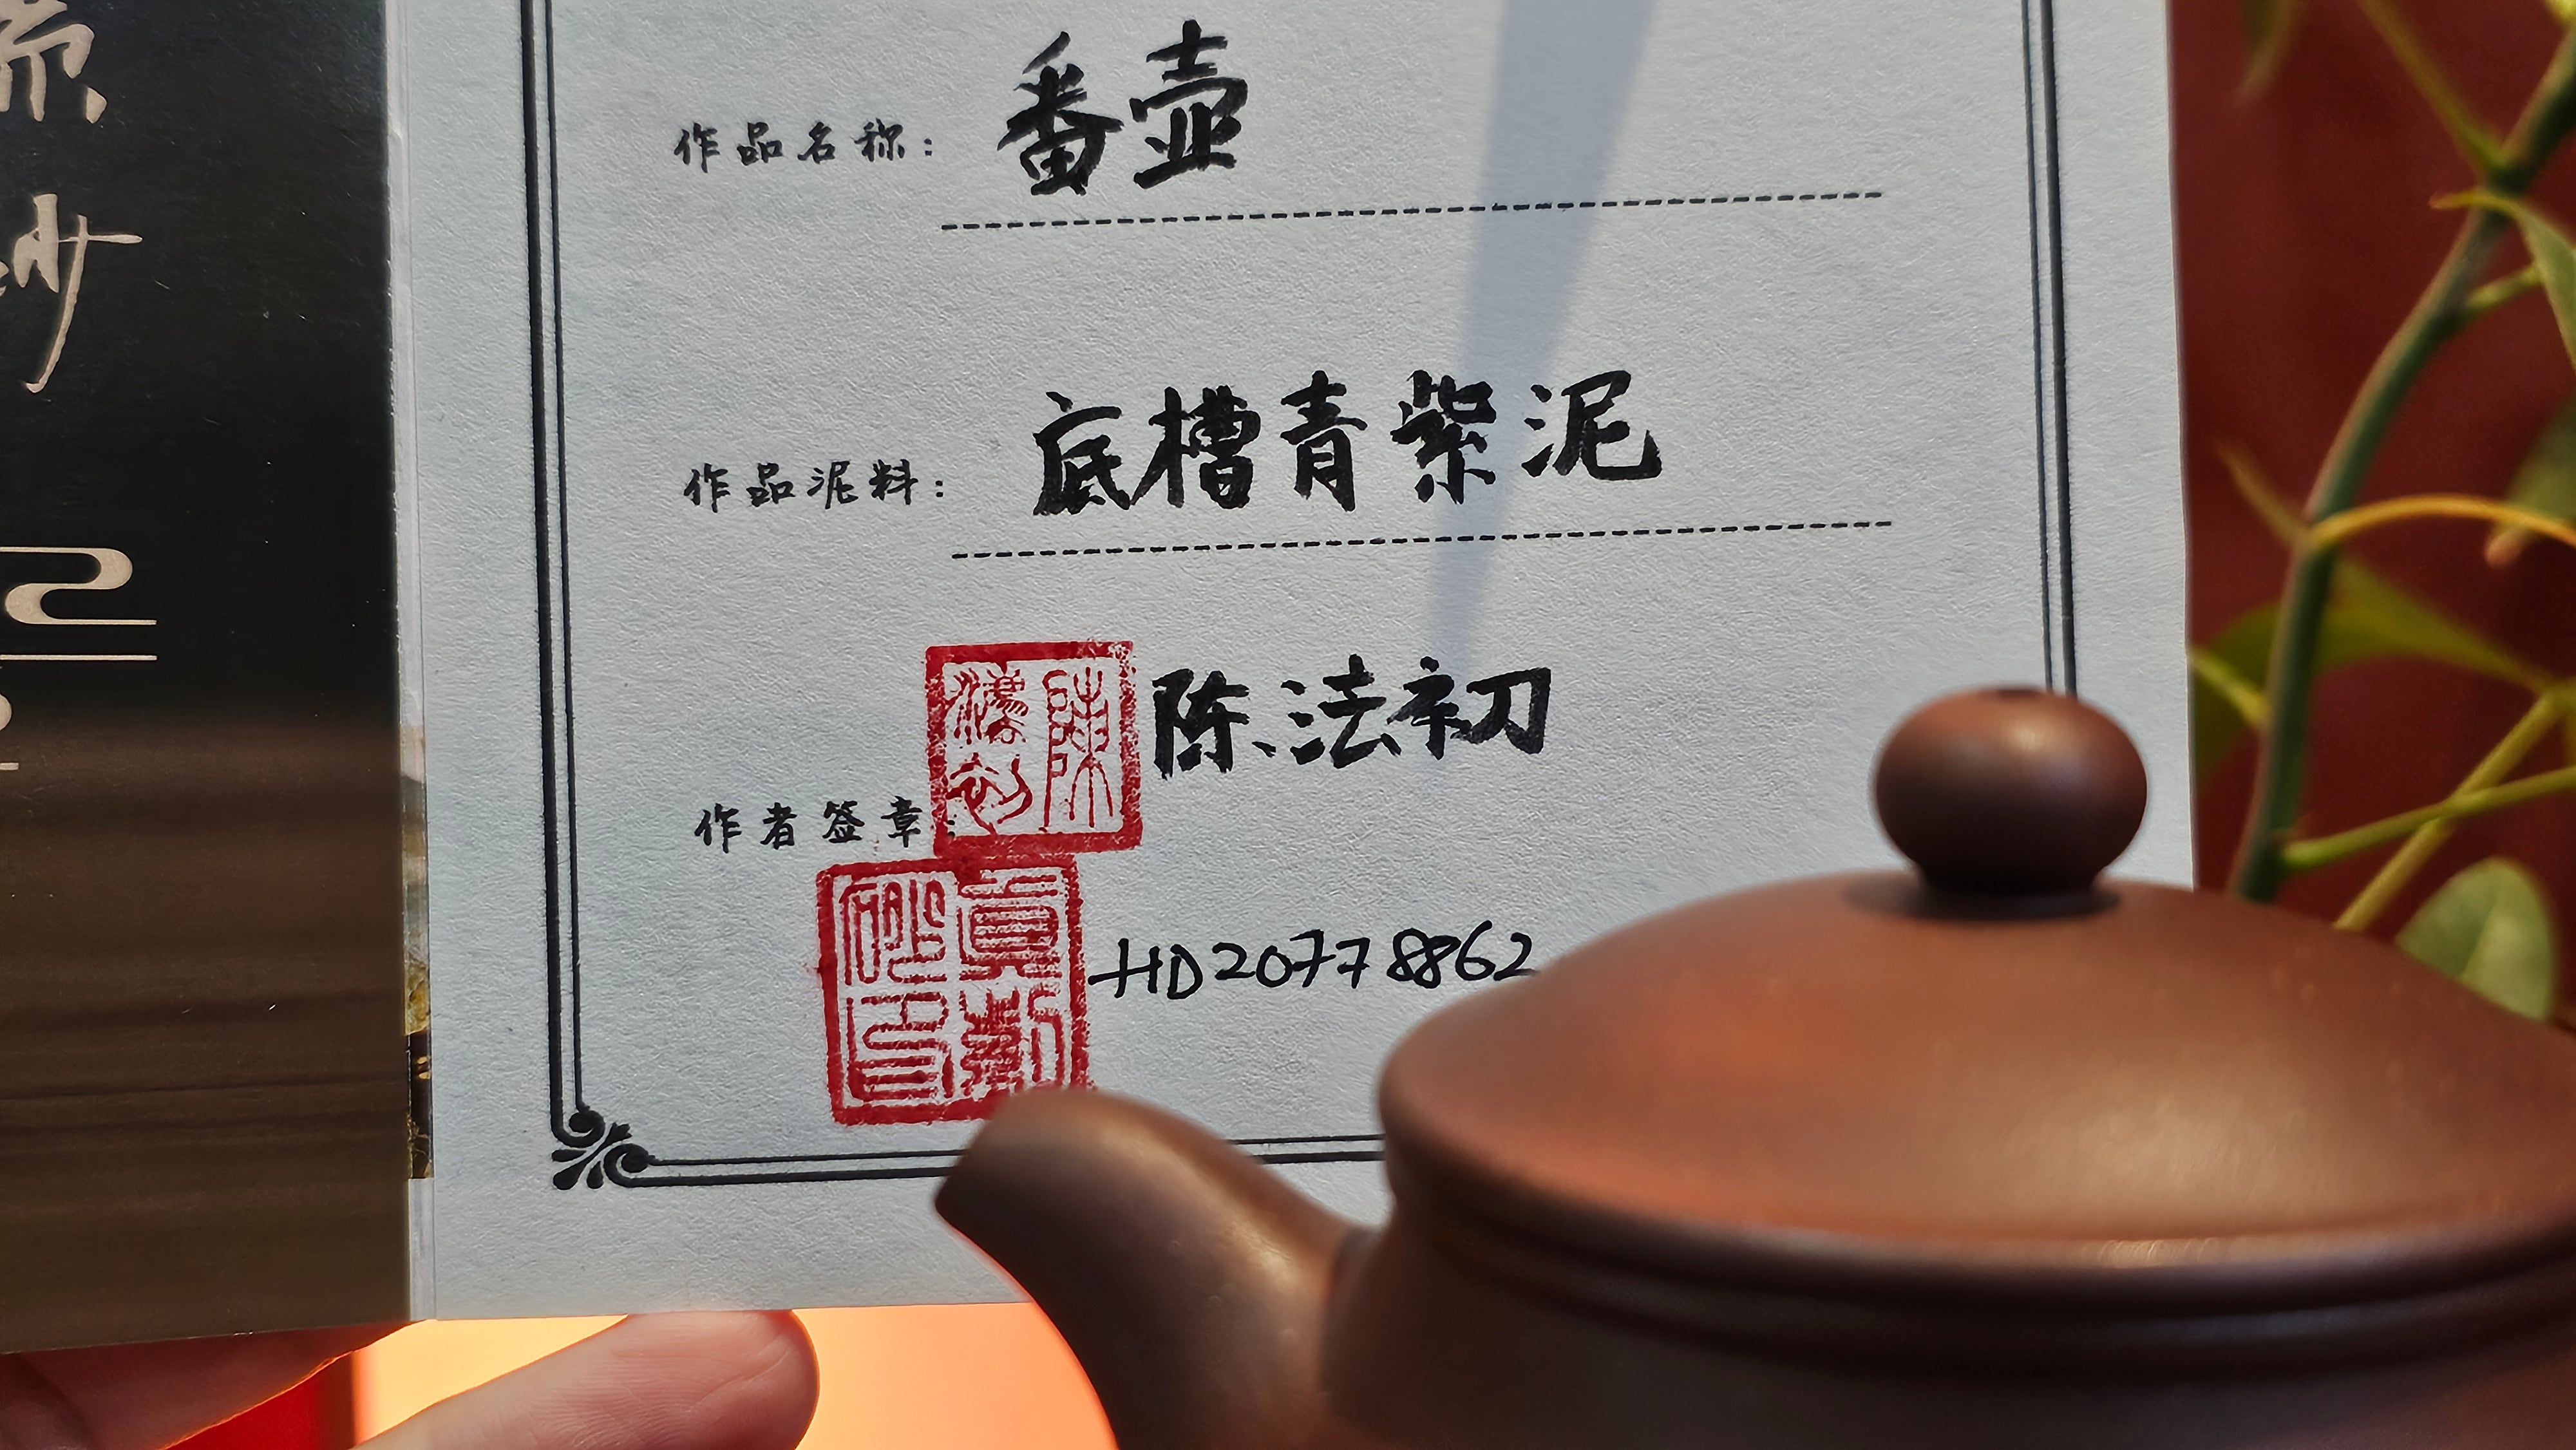 作品名称：番壶
作品泥料：底槽青紫泥
陈法初
作者签章：
陳法初
HD20778862